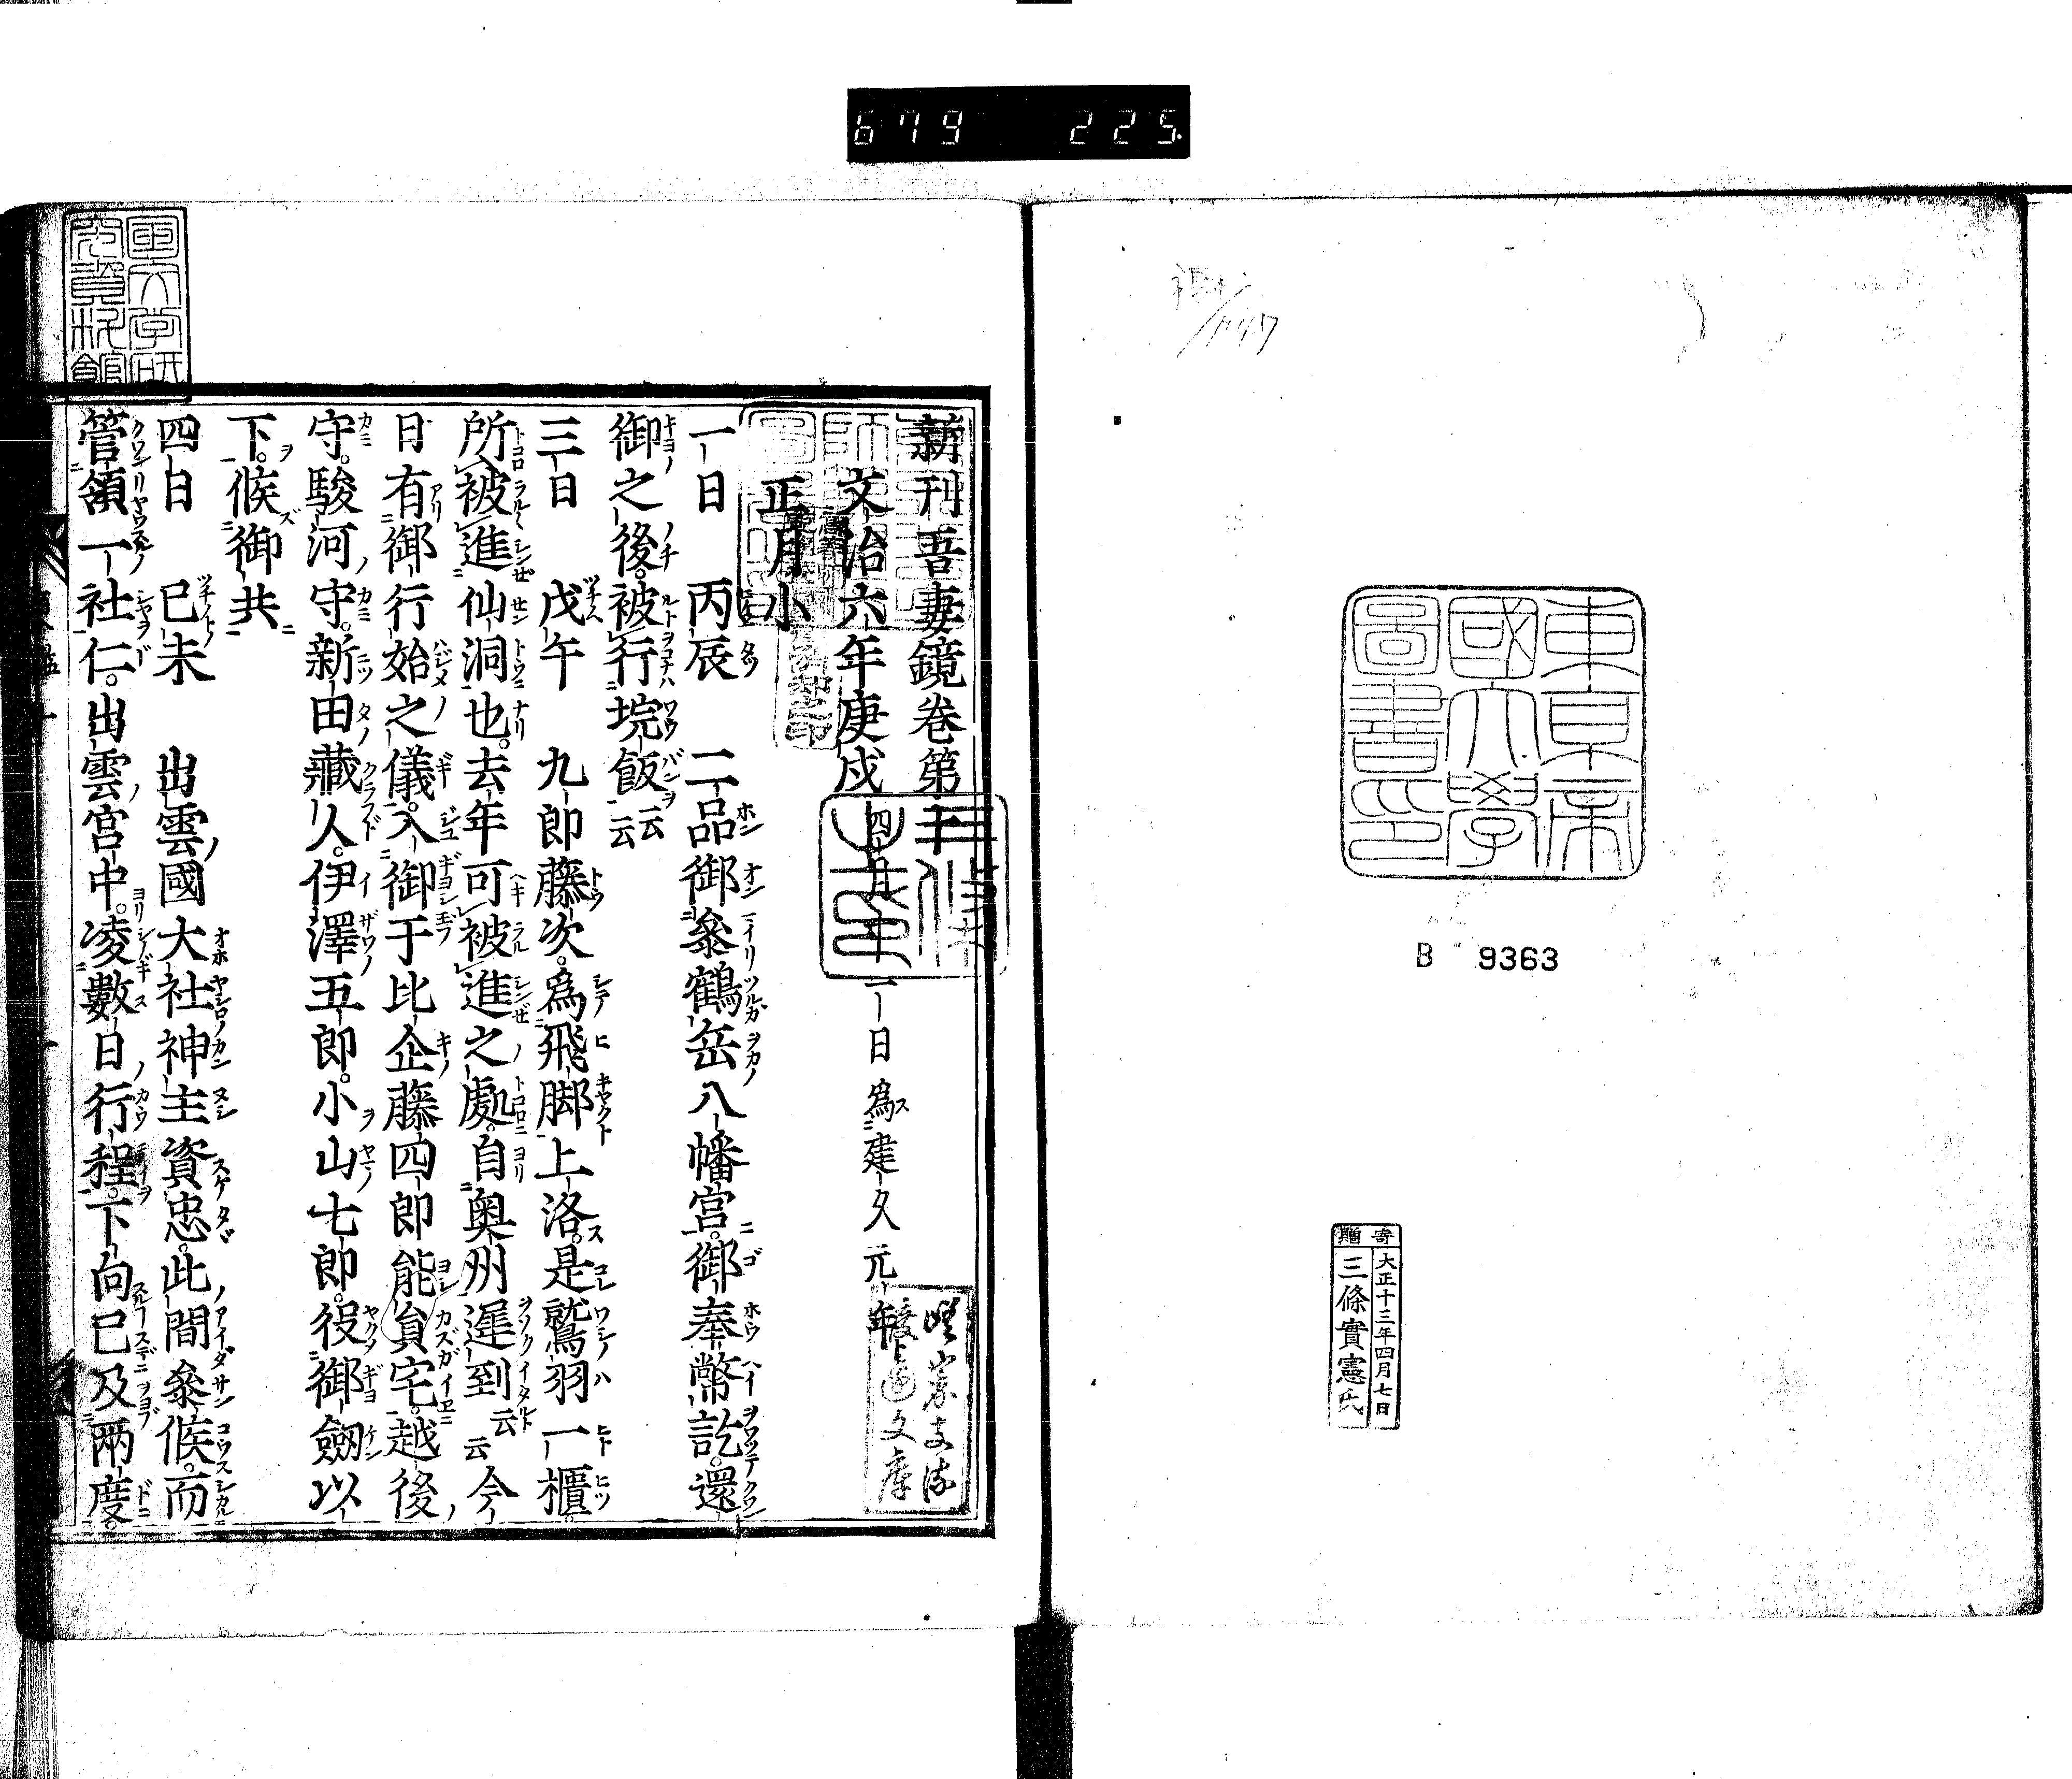 679 225
東京帝
國大學
圖書印
B 9363
寄贈
大正十三年四月七日
三條實憲氏
新刊吾妻鏡卷第十
文治六年庚戌 四月十一日爲建久元年
正月小
一日 丙辰 二品御參鶴岳八幡宮。御奉幣訖。還
御之後。被行垸飯云云
三日 戊午 九郎藤次。爲飛脚上洛。是鷲羽一櫃。
所被進仙洞也。去年可被進之處。自奧州遲到云云今
日有御行始之儀。入御于比企藤四郎能員宅。越後
守。駿河守。新田藏人。伊澤五郎。小山七郎。役御劔以
下。候御共
四日 己未 出雲國大社神主資忠。此間參候。而
管領一社仁。出雲宮中。凌數日行程。下向已及兩度。